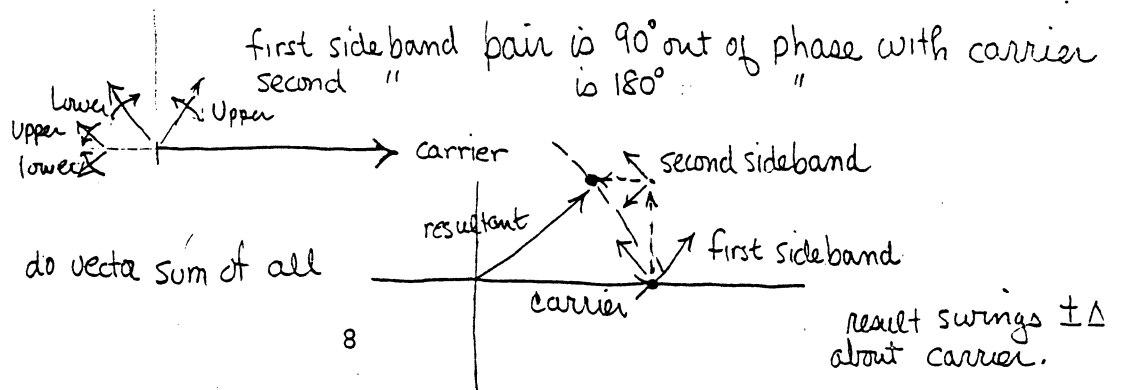 first sideband pair is 90° out of phase with carrier
second " is 180° "
Lower
Upper
Upper
lower
carrier
second sideband
resultant
first sideband
do vecta sum of all
carrier
result swings ±Δ
about carrier.
8